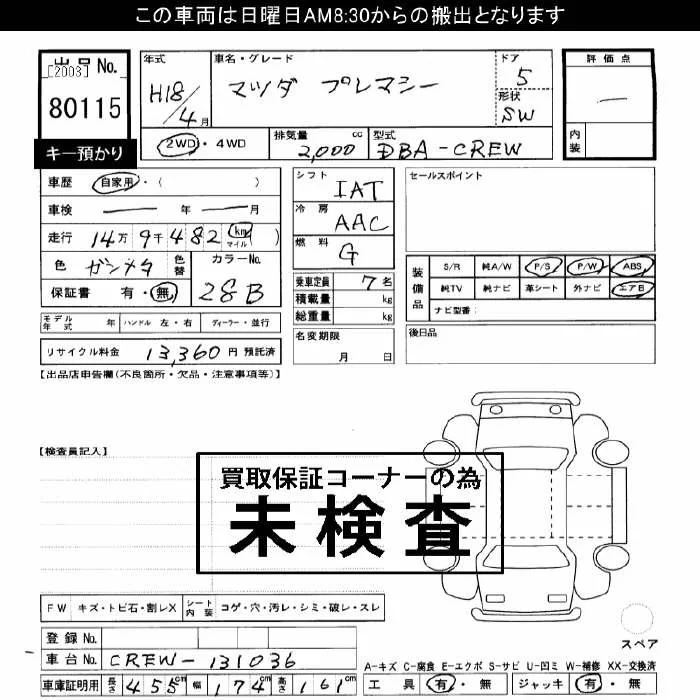 この車両は日曜日AM8:30からの搬出となります
出品No.
[2003]
80115
キー預かり
年式
H18/4月
車名・グレード
マツダ プレマシー
ドア
5
形状
SW
評価点
―
内装
2WD・4WD
排気量 cc
2,000
型式
DBA-CREW
車歴 自家用・( )
車検 ― 年 ― 月
走行 14万9千482 (km マイル)
色 ガンメタ 色替
カラーNo.
28B
保証書 有・無
モデル年式 年 ハンドル 左・右 ディーラー・並行
リサイクル料金 13,360円 預託済
シフト
IAT
冷房
AAC
燃料
G
乗車定員 7名
積載量 kg
総重量 kg
名変期限
月 日
セールスポイント
装備品
S/R 純A/W P/S P/W ABS
純TV 純ナビ 革シート 外ナビ エアB
ナビ型番:
後日品
【出品店申告欄(不良箇所・欠品・注意事項等)】
【検査員記入】
買取保証コーナーの為
未検査
FW キズ・トビ石・割レX シート内装 コゲ・穴・汚レ・シミ・破レ・スレ
登録No.
車台No. CREW-131036
車庫証明用 長さ 455cm 幅 174cm 高さ 161cm
スペア
A-キズ C-腐食 E-エクボ S-サビ U-凹ミ W-補修 XX-交換済
工具 有・無 ジャッキ 有・無